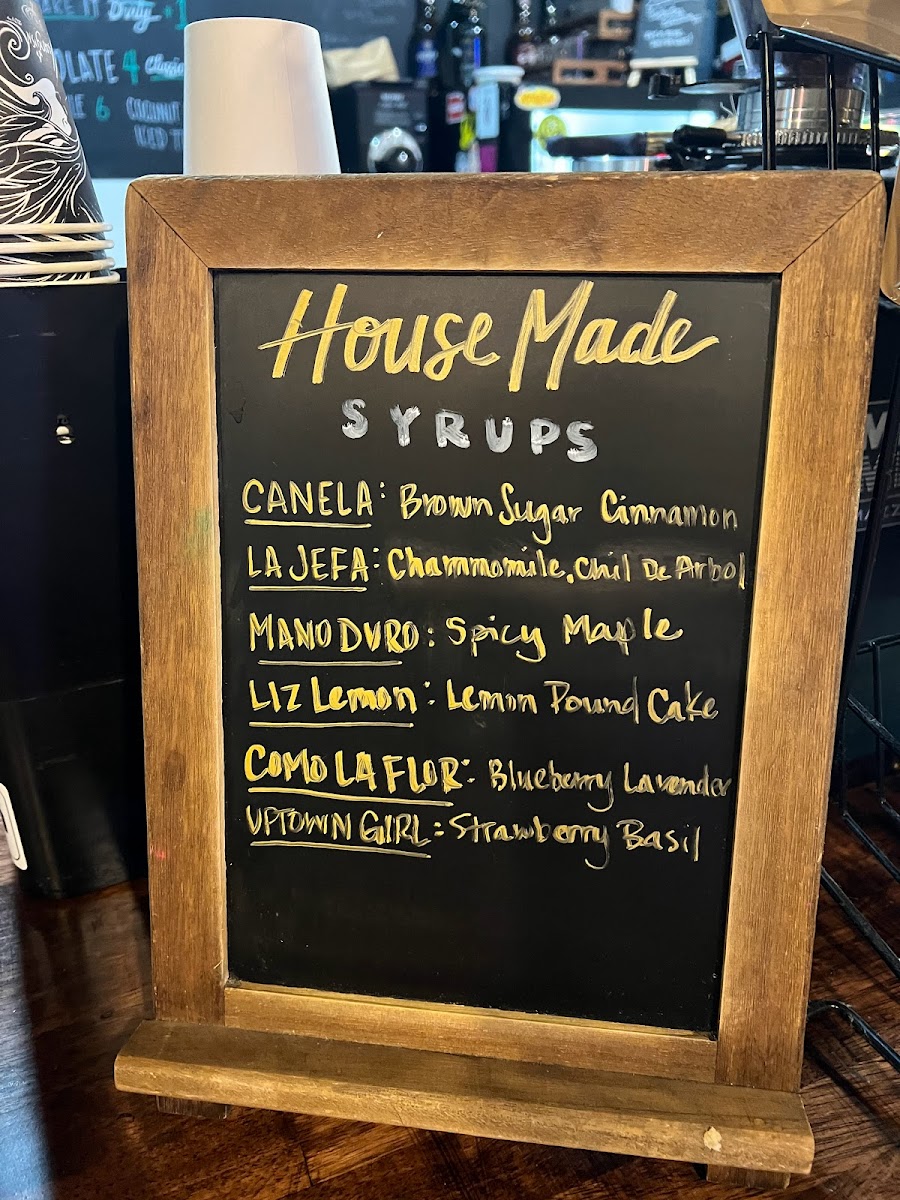 Duty +1
OLATE 4 Classic
LE 6 COCONUT
ICED T
House Made
SYRUPS
CANELA: Brown Sugar Cinnamon
LA JEFA: Chammomile, Chil De Arbol
MANO DURO: Spicy Maple
LIZ Lemon: Lemon Pound Cake
COMO LA FLOR: Blueberry Lavender
UPTOWN GIRL: Strawberry Basil